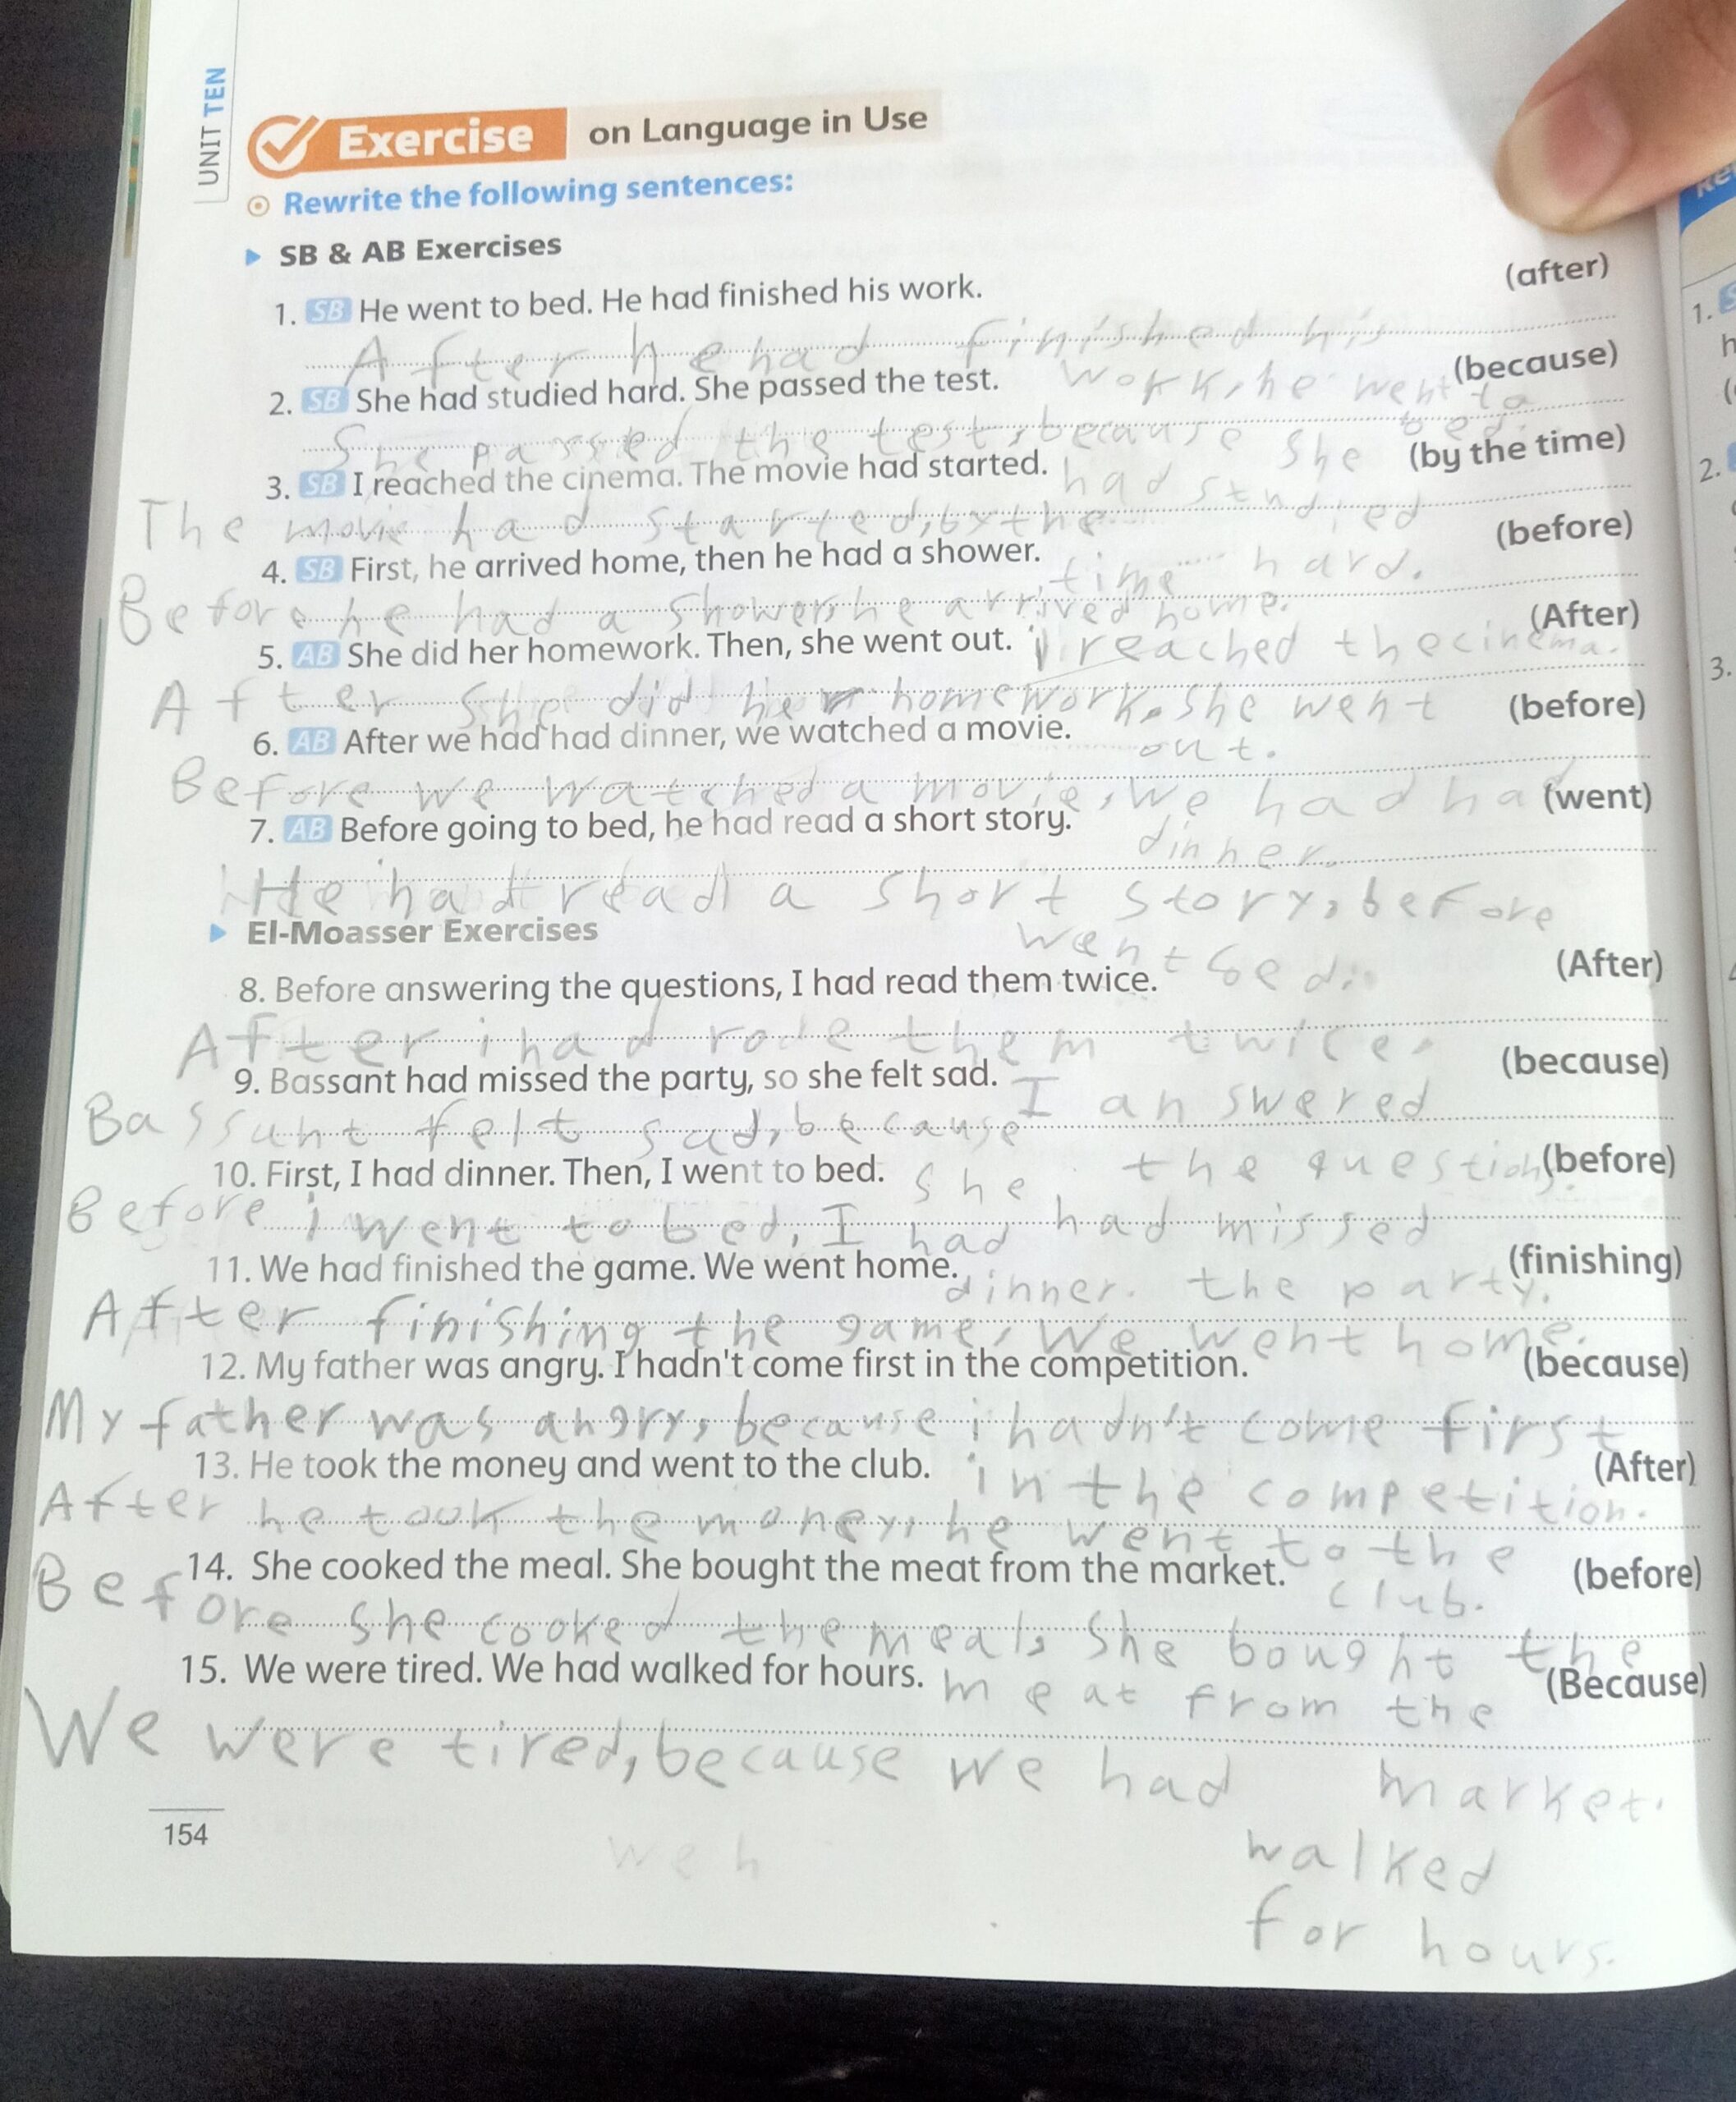 UNIT TEN
Exercise on Language in Use
Rewrite the following sentences:
SB & AB Exercises
1. SB He went to bed. He had finished his work. (after)
After he had finished his
work, he went to
bed.
2. SB She had studied hard. She passed the test. (because)
She passed the test, because she
had studied
hard.
3. SB I reached the cinema. The movie had started. (by the time)
The movie had started, by the
time
i reached the cinema.
4. SB First, he arrived home, then he had a shower. (before)
Before he had a shower, he arrived home.
5. AB She did her homework. Then, she went out. (After)
After she did her homework, she went
out.
6. AB After we had had dinner, we watched a movie. (before)
Before we watched a movie, we had had
dinner.
7. AB Before going to bed, he had read a short story. (went)
He had read a short story, before
went bed.
El-Moasser Exercises
8. Before answering the questions, I had read them twice. (After)
After i had rode them twice,
I answered
the questions.
9. Bassant had missed the party, so she felt sad. (because)
Bassunt felt sad, because
she
had missed
the party.
10. First, I had dinner. Then, I went to bed. (before)
Before i went to bed, I had
dinner.
11. We had finished the game. We went home. (finishing)
After finishing the game, we went home.
12. My father was angry. I hadn't come first in the competition. (because)
My father was angry, because i hadn't come first
in the competition.
13. He took the money and went to the club. (After)
After he took the money, he went to the
club.
14. She cooked the meal. She bought the meat from the market. (before)
Before she cooked the meal, She bought the
meat from the
market.
15. We were tired. We had walked for hours. (Because)
We were tired, because we had
walked
for hours.
154
we h
1.
2.
3.